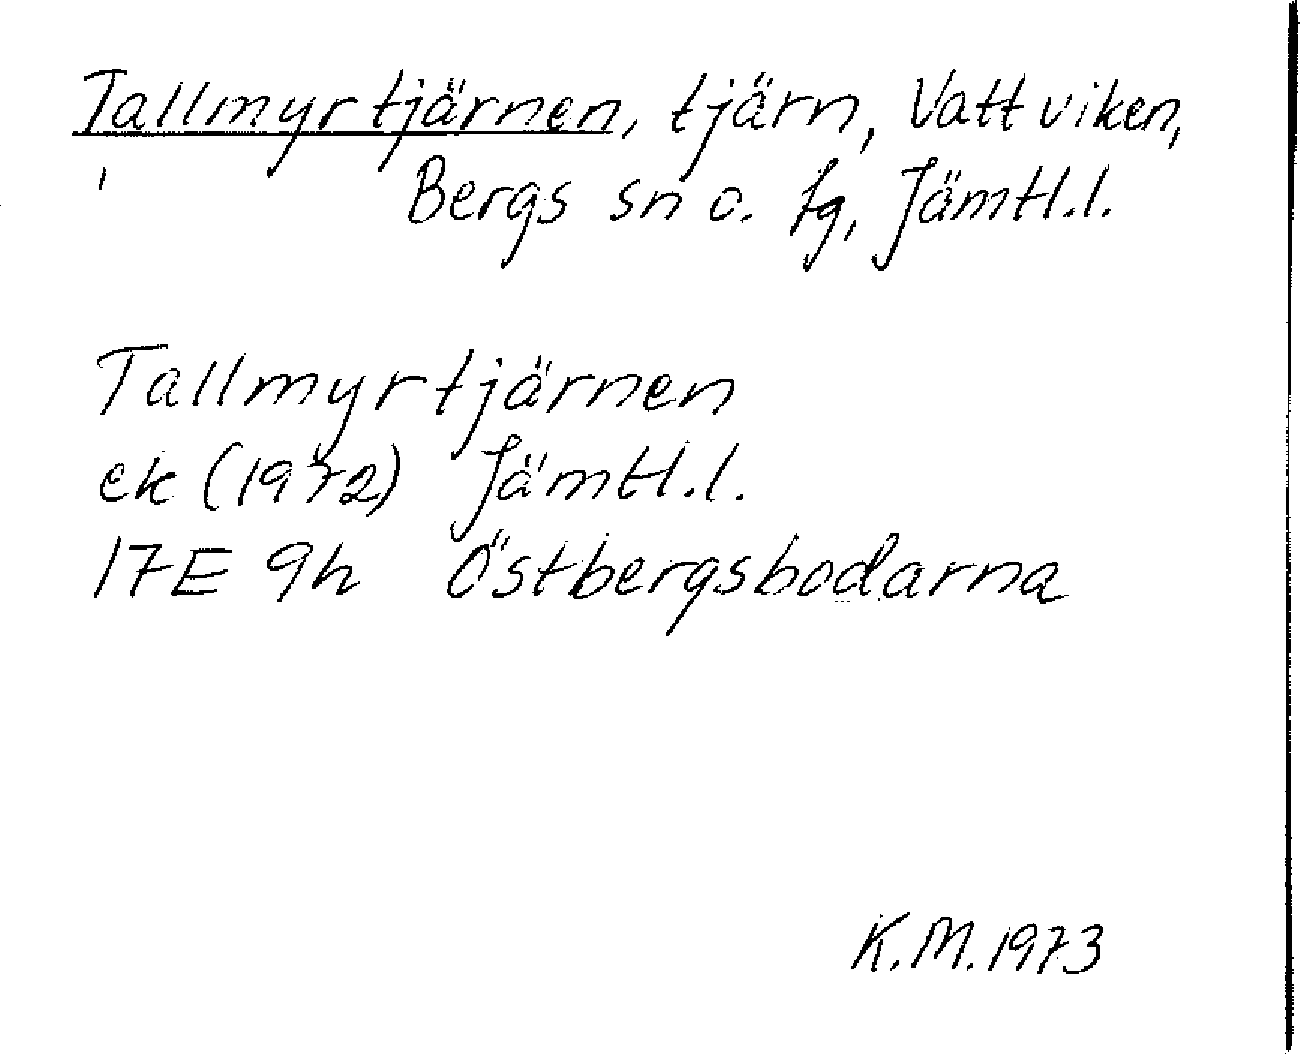 Tallmyrtjärnen, tjärn, Vattviken,
Bergs sn o. tg, Jämtl.l.
Tallmyrtjärnen
ek (1972) Jämtl.l.
17E 9h Östbergsbodarna
K.M.1973